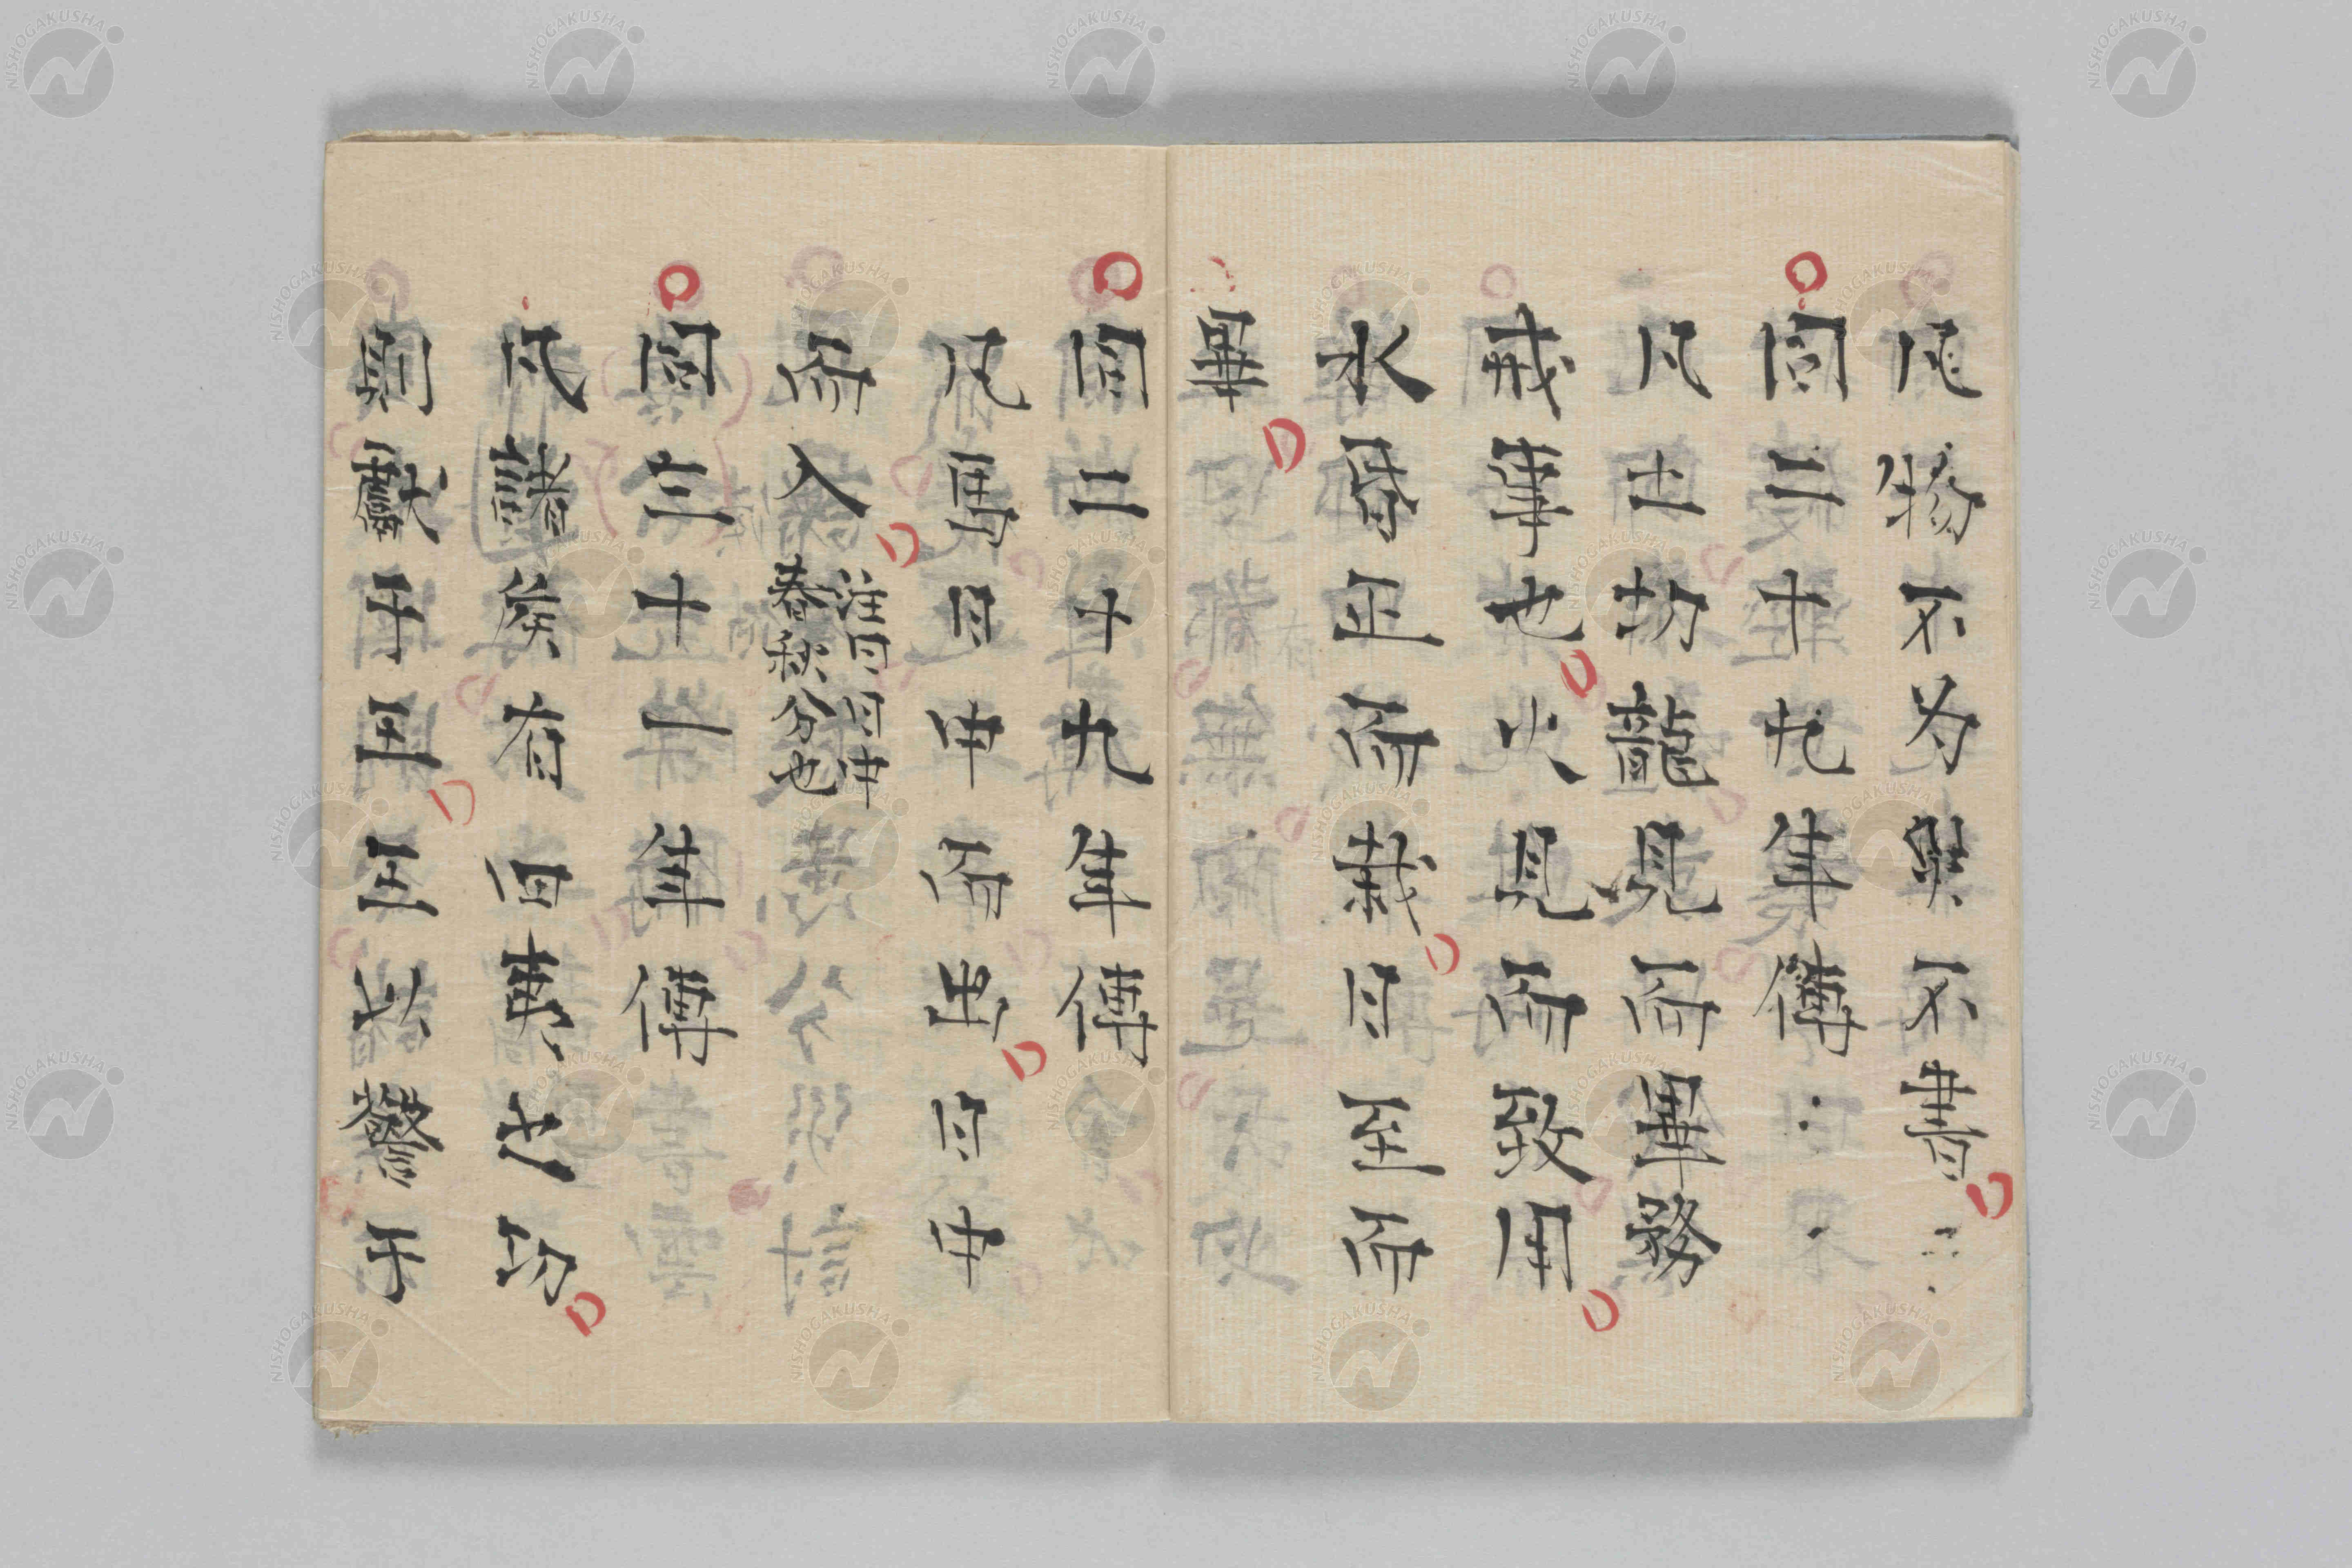 凡物不为災不書
同二十九年傳
凡土功龍見而畢務
戒事也火見而致用
水昏正而栽日至而
畢
同二十九年傳
凡馬日中而出日中
而入
注曰日中
春秋分也
同三十一年傳
凡諸侯有四夷之功
則獻于王王以警于
NISHOGAKUSHA